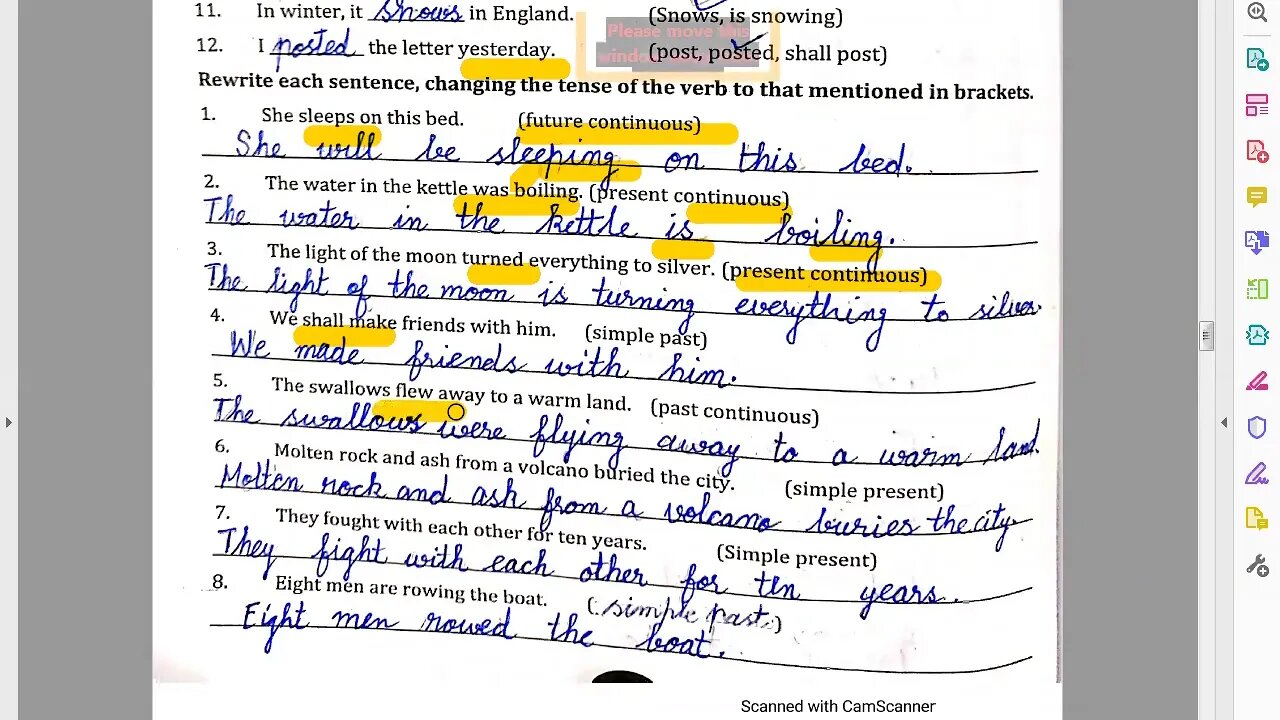 11. In winter, it snows in England. (Snows, is snowing)
12. I posted the letter yesterday. (post, posted, shall post)
Please move this
Rewrite each sentence, changing the tense of the verb to that mentioned in brackets.
1. She sleeps on this bed. (future continuous)
She will be sleeping on this bed.
2. The water in the kettle was boiling. (present continuous)
The water in the kettle is boiling.
3. The light of the moon turned everything to silver. (present continuous)
The light of the moon is turning everything to silver.
4. We shall make friends with him. (simple past)
We made friends with him.
5. The swallows flew away to a warm land. (past continuous)
The swallows were flying away to a warm land.
6. Molten rock and ash from a volcano buried the city. (simple present)
Molten rock and ash from a volcano buries the city.
7. They fought with each other for ten years. (Simple present)
They fight with each other for ten years.
8. Eight men are rowing the boat. (simple past)
Eight men rowed the boat.
Scanned with CamScanner